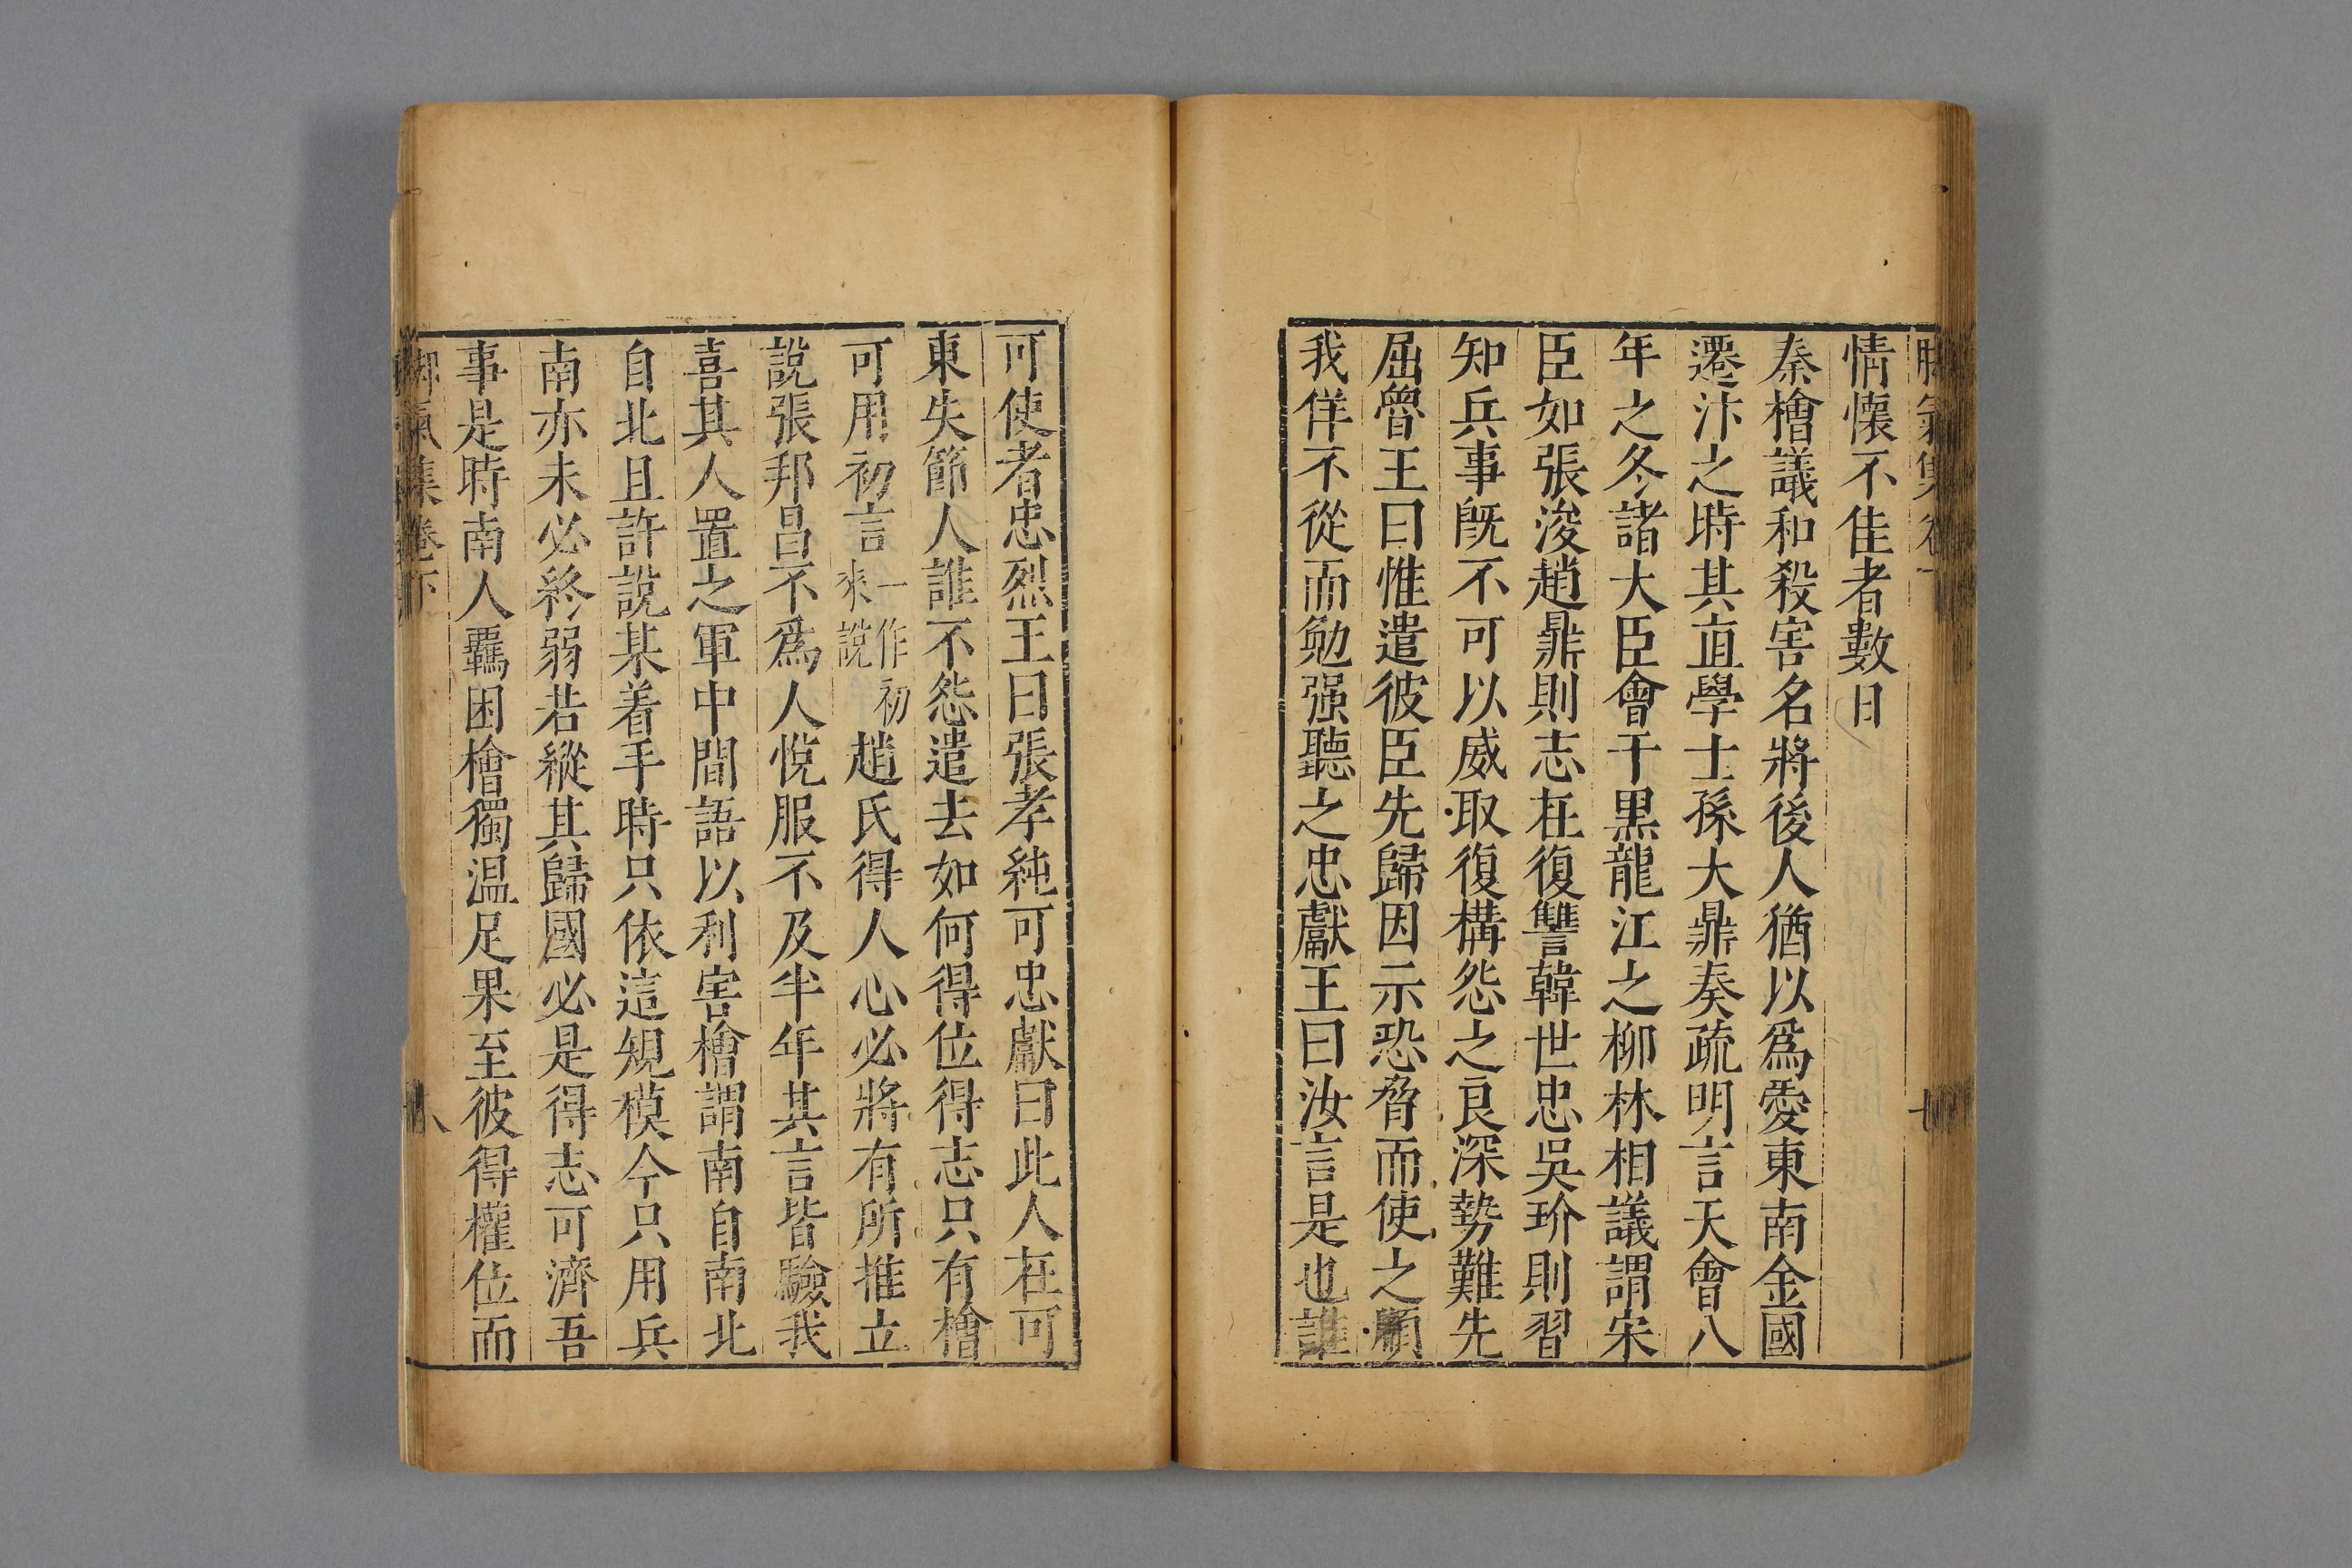 情懷不佳者數日
秦檜議和殺害名將後人猶以爲愛東南金國
遷汴之時其直學士孫大鼎奏疏明言天會八
年之冬諸大臣會于黑龍江之柳林相議謂宋
臣如張浚趙鼎則志在復讐韓世忠吳玠則習
知兵事旣不可以威取復構怨之良深勢難先
屈魯王曰惟遣彼臣先歸因示恐脅而使之順
我佯不從而勉强聽之忠獻王曰汝言是也誰
可使者忠烈王曰張孝純可忠獻曰此人在可
東失節人誰不怨遣去如何得位得志只有檜
可用初言一作初來說趙氏得人心必將有所推立
說張邦昌不爲人悅服不及半年其言皆驗我
喜其人置之軍中間語以利害檜謂南自南北
自北且許說某着手時只依這規模今只用兵
南亦未必終弱若縱其歸國必是得志可濟吾
事是時南人羈困檜獨温足果至彼得權位而
脚氣集卷下
八